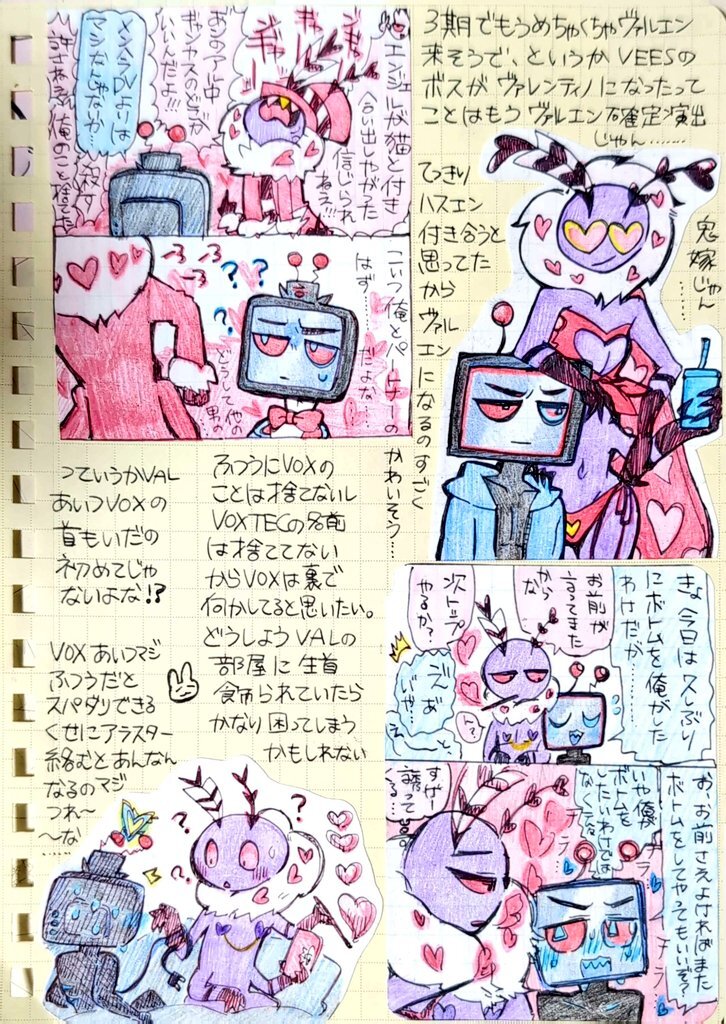 3期でもうめちゃくちゃヴァルエン
来そうで、というかVEESの
ボスがヴァレンティノになったって
ことはもうヴァルエン確定演出
じゃん……
てっきり
ハスエン
付き合うと
思ってた
から
ヴァル
エン
になるのすごく
かわいそう……
鬼嫁じゃん
……
エンジェルが猫と付き
合い出しやがった
信じられ
ねぇ!!!
ギャンカスのどこが
いいんだよ!!!
DVよりは
マシなんじゃないか…
許さねぇ 俺のこと捨てた
こいつ俺とパートナーの
はず……だよな…
どうして他の
男の
ふつうにVOXの
ことは捨てないし
VOXTECの名前
は捨ててない
からVOXは裏で
何かしてると思いたい。
どうしようVALの
部屋に生首
飾られていたら
かなり困ってしまう
かもしれない
っていうかVAL
あいつVOXの
首もいだの
初めてじゃ
ないよな!?
VOXあいつマジ
ふつうだと
スパダリできる
くせにアラスター
絡むとあんなん
なるのマジ
つれ〜
〜な
……
きょ、今日は久しぶり
にボトムを俺がした
わけだが…
お前が
言ってまた
からな
次トップ
やるか?
いや…
えーっと、
お、お前さえよければまた
ボトムをしてやってもいいぞ?
いや俺が
ボトムを
したいわけでは
なくてな
チラ
チラ
すげー
誘って
くる…